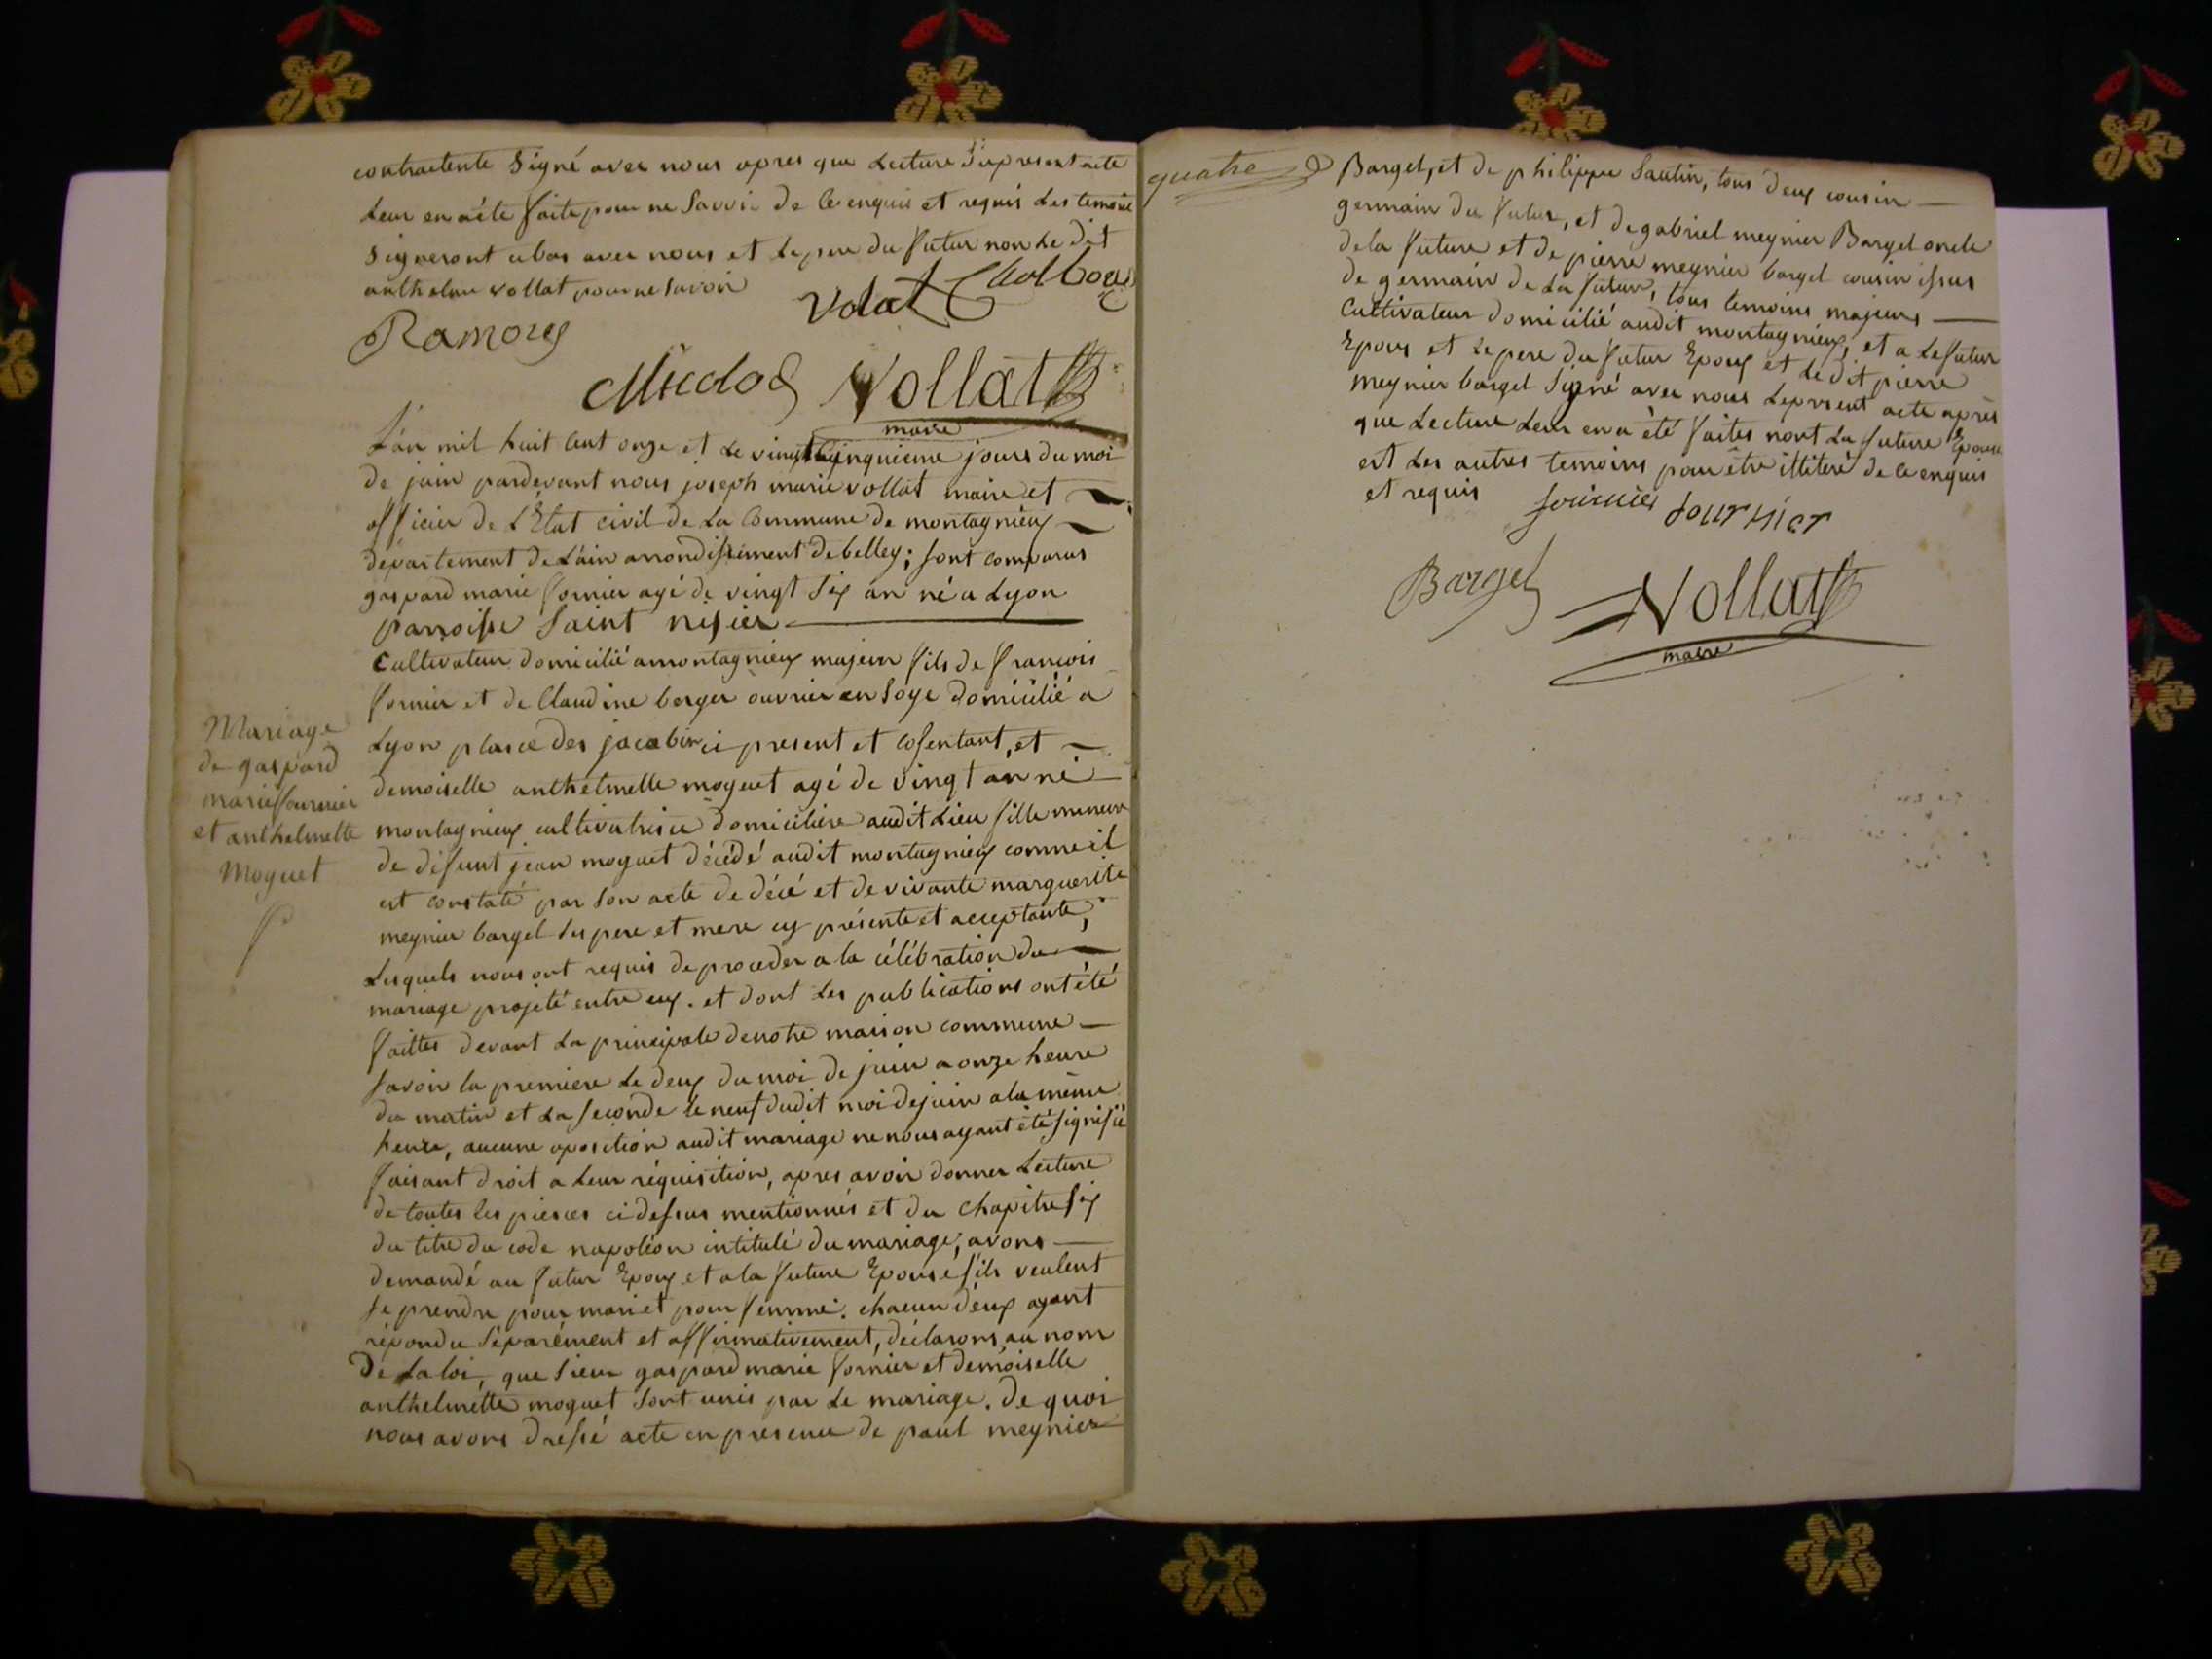 contractente Signé avec nous apres que Lecture du present acte
Leur en a été faite pour ne Savoir de ce enquis et requis Les temoins
Signeront abas avec nous et Le pere du futur non Le dit
anthelme vollat pour ne Savoir
Volat
Ramoug
Vollat
maire
L'an mil huit Cent onze et Le vingt Cinquieme jours du moi
de juin pardevant nous joseph marie vollat maire et
officier de L'Etat civil de La Commune de montagnieux
departement de L'ain arrondissement de belley; sont comparus
gaspard marie fornier agé de vingt Six an né a Lyon
parroisse Saint nisier
Cultivateur domicilié a montagnieux majeur fils de francois
fornier et de Claudine berger ouvrier en Soye domicilié a
Lyon plasce des jacobin ci present et cosentant, et
demoiselle anthelmette moguet agé de vingt an né
montagnieux cultivatrice domiciliere audit Lieu fille mineure
de defunt jean moguet décédé audit montagnieux comme il
est constaté par Son acte de décé et de vivante marguerite
meynier bargel Ses pere et mere cy présente et acceptante,
Lesquels nous ont requis de proceder a la célébration du
mariage projeté entre eux. et dont Les publications ont été
faittes devant La principale de notre maison commune
Savoir la premiere Le deux du moi de juin a onze heure
du matin et La seconde le neuf dudit moi de juin a la même
heure, aucune oposition audit mariage ne nous ayant été Signifié
faisant droit a Leur réquisition, apres avoir donner Lecture
de toutes les piesces ci dessus mentionnés et du chapitre Six
du titre du code napoléon intitulé du mariage, avons
demandé au futur Epoux et a la future Epouse S'ils veulent
se prendre pour mari et pour femme. chacun d'eux ayant
répondu Séparément et affirmativement, déclarons au nom
De La loi, que Sieur gaspard marie fornier et demoiselle
anthelmette moguet Sont unis par Le mariage. De quoi
nous avons dressé acte en presence de paul meynier
Mariage
de gaspard
marie fournier
et anthelmette
Moguet
quatre
Bargel, et de philippe Sautin, tous deux cousin
germain du futur, et de gabriel meynier Bargel oncle
de la future et de pierre meynier bargel cousin issus
de germain de La future, tous temoins majeurs
Cultivateur domicilié audit montagnieux, et a Le futur
Epoux et Le pere du futur Epoux et Le dit pierre
meynier bargel Signé avec nous Le present acte après
que Lecture Leur en a été faites nont La future Epouse
est Les autres temoins pour être illiteré de ce enquis
et requis
fournier fournier
Bargel
Vollat
maire